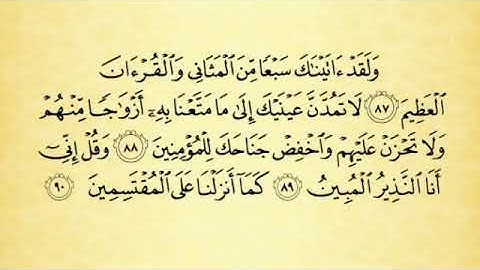 وَلَقَدْ ءَاتَيْنَٰكَ سَبْعًا مِّنَ ٱلْمَثَانِي وَٱلْقُرْءَانَ
ٱلْعَظِيمَ ٨٧ لَا تَمُدَّنَّ عَيْنَيْكَ إِلَىٰ مَا مَتَّعْنَا بِهِۦٓ أَزْوَٰجًا مِّنْهُمْ
وَلَا تَحْزَنْ عَلَيْهِمْ وَٱخْفِضْ جَنَاحَكَ لِلْمُؤْمِنِينَ ٨٨ وَقُلْ إِنِّيٓ
أَنَا ٱلنَّذِيرُ ٱلْمُبِينُ ٨٩ كَمَآ أَنزَلْنَا عَلَى ٱلْمُقْتَسِمِينَ ٩٠